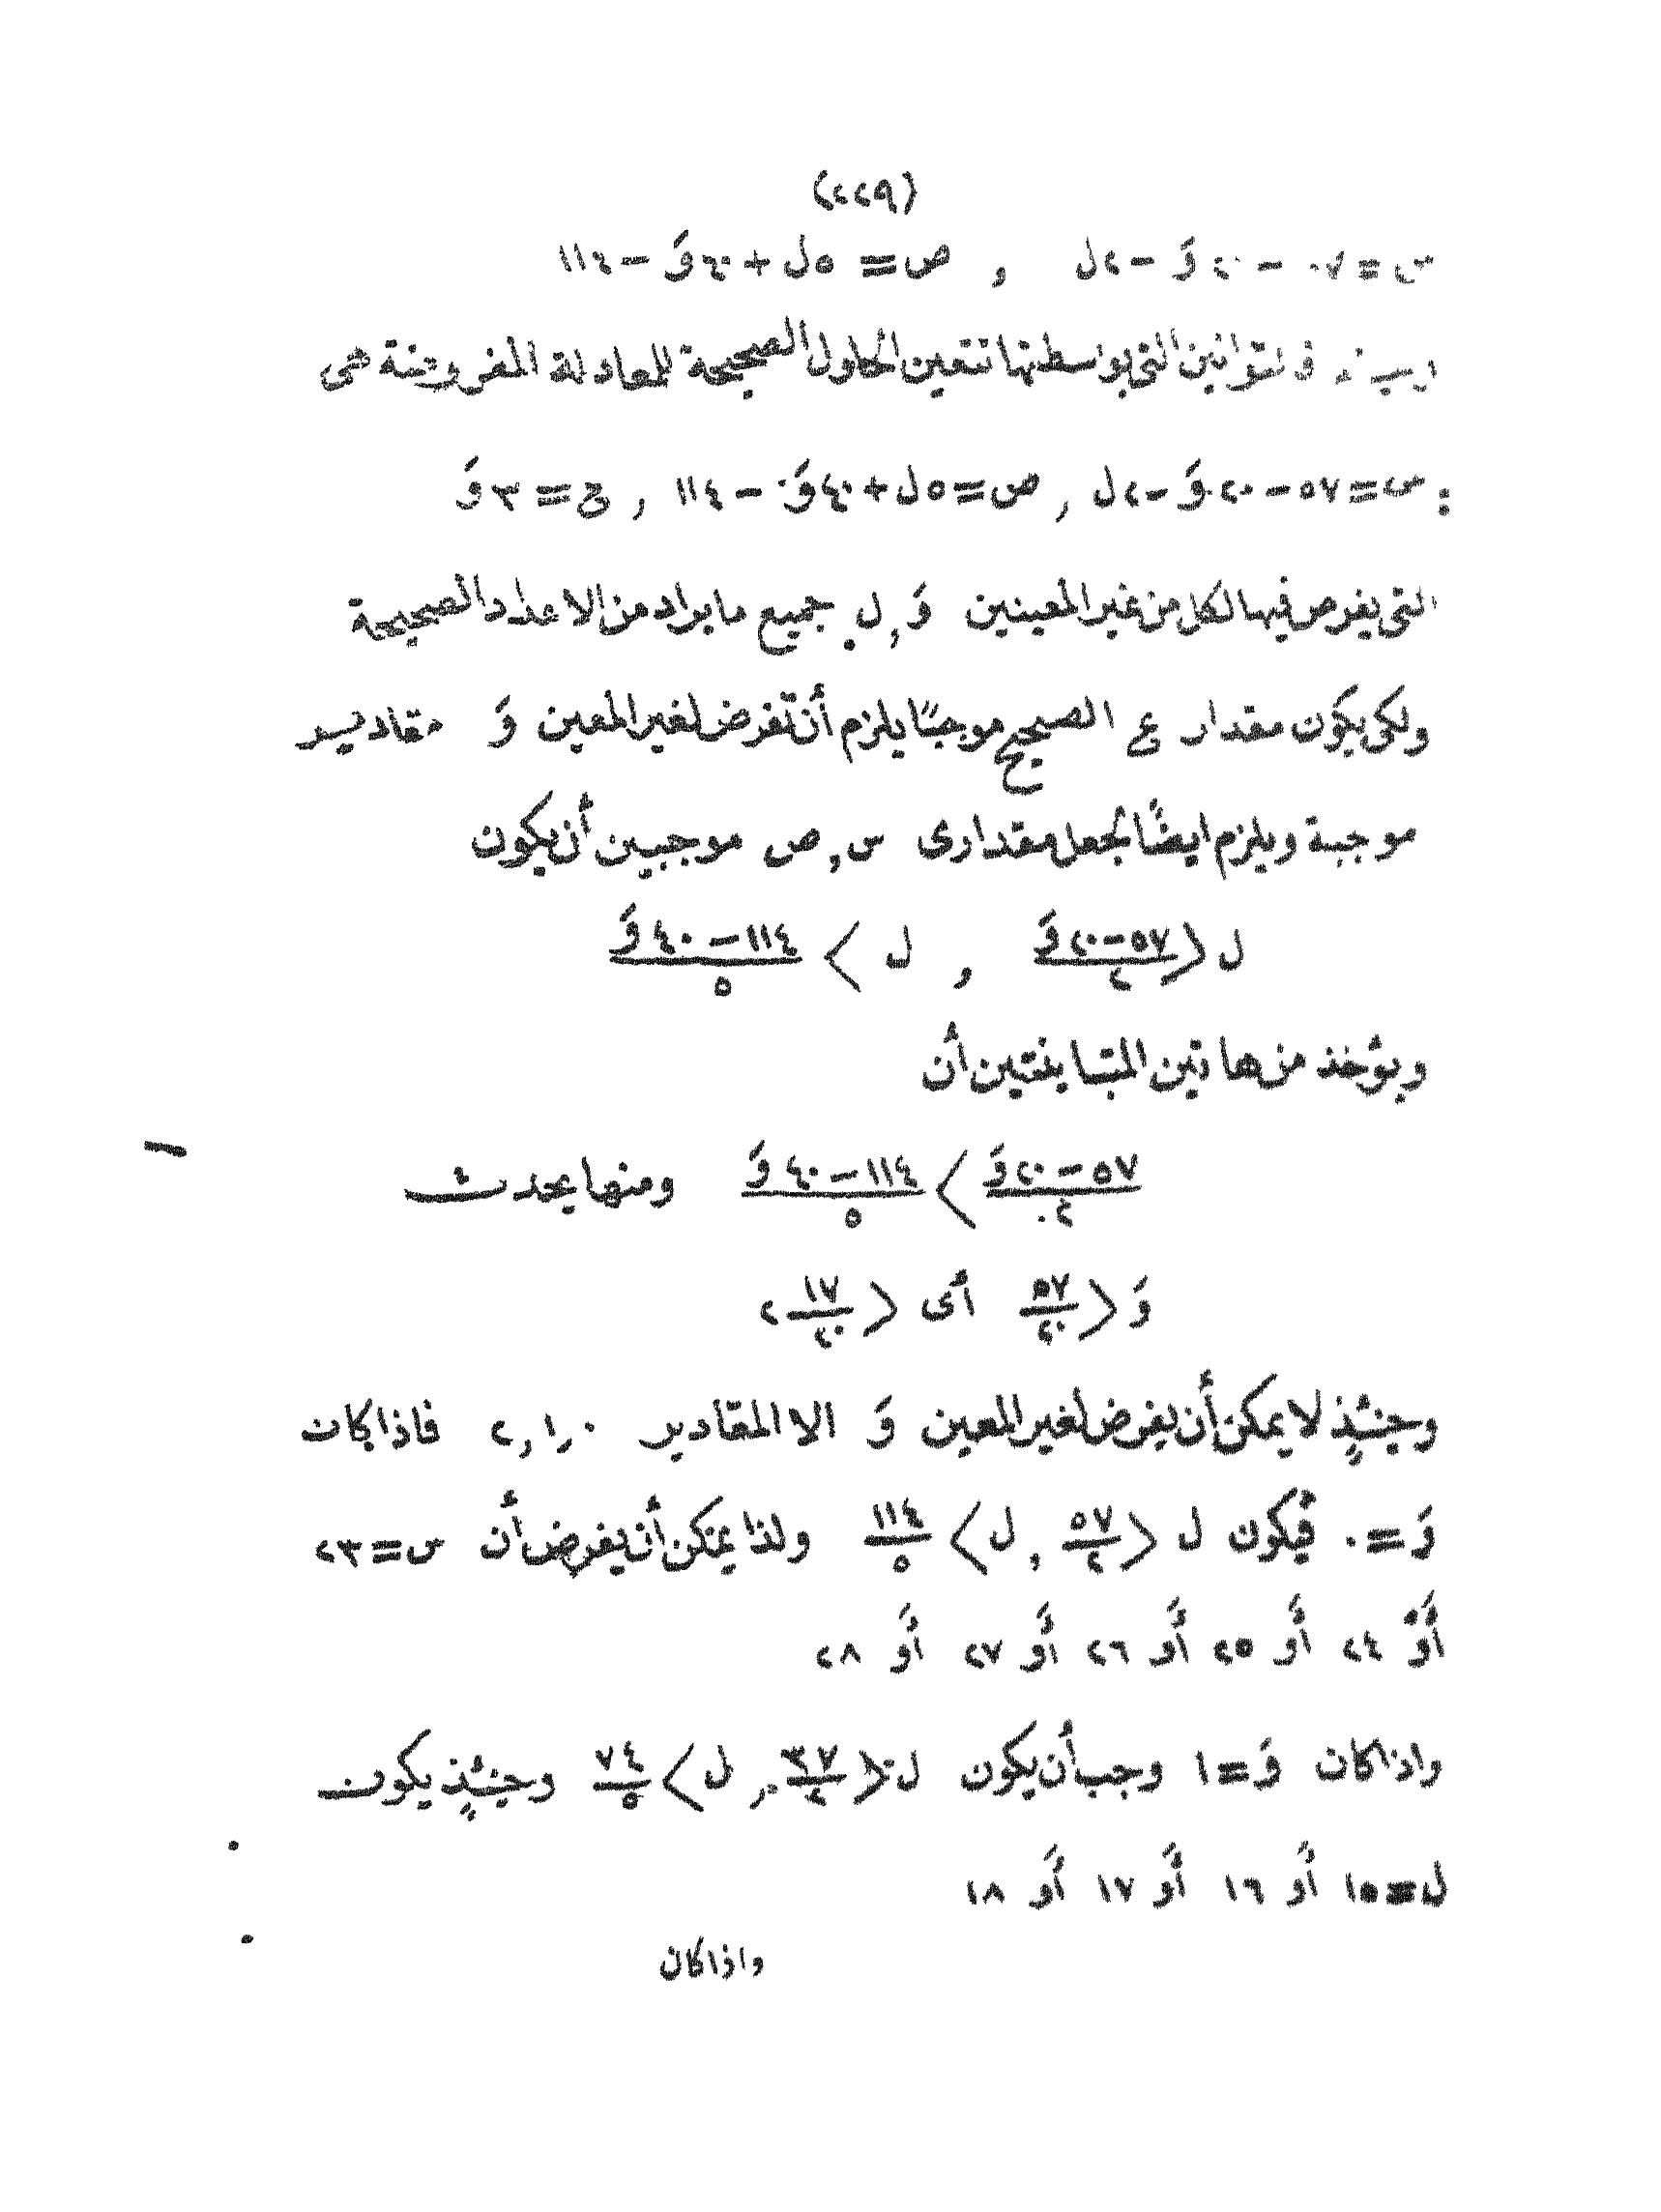 (٢٢٩)
س = ٥٧ - ٢٠ وَ - ٢ل , ص = ٥ل + ٤٠ وَ - ١١٤
القوانين التي بواسطتها تتعين الحلول الصحيحة للمعادلة المفروضة هى
س = ٥٧ - ٢٠ وَ - ٢ل , ص = ٥ل + ٤٠ وَ - ١١٤ , ع = ٣ وَ
التى يفرض فيها لكل من غير المعينين وَ , ل جميع ما يراد من الاعداد الصحيحة
ولكى يكون مقدار ع الصحيح موجبًا يلزم أن تفرض لغير المعين وَ مقاديـر
موجبة ويلزم ايضًا لجعل مقدارى س , ص موجبين أن يكون
ل < (٥٧ - ٢٠ وَ)/٢ , ل > (١١٤ - ٤٠ وَ)/٥
ويؤخذ من هاتين المتباينتين أن
(٥٧ - ٢٠ وَ)/٢ > (١١٤ - ٤٠ وَ)/٥ ومنها يحدث
وَ < ٥٧/٢٠ أى < ٢ ١٧/٢٠
وحينئذٍ لا يمكن أن يفرض لغير المعين وَ الا المقادير ٠ , ١ , ٢ فاذا كان
وَ = ٠ فيكون ل < ٥٧/٢ , ل > ١١٤/٥ ولذا يمكن أن يفرض أن س = ٢٣
أَو ٢٤ أَو ٢٥ أَو ٢٦ أَو ٢٧ أَو ٢٨
واذا كان وَ = ١ وجب أن يكون ل < ٣٧/٢ , ل > ٧٤/٥ وحينئذٍ يكون
ل = ١٥ أَو ١٦ أَو ١٧ أَو ١٨
واذا كان